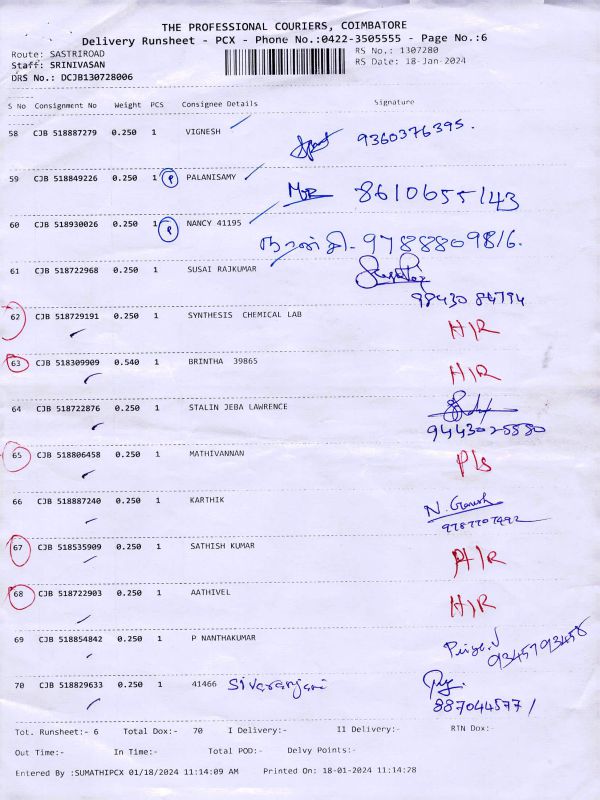 THE PROFESSIONAL COURIERS, COIMBATORE
Delivery Runsheet - PCX - Phone No.:0422-3505555 - Page No.:6
Route: SASTRIROAD RS No.: 1307280
Staff: SRINIVASAN RS Date: 18-Jan-2024
DRS No.: DCJB130728006
S No Consignment No Weight PCS Consignee Details Signature
58 CJB 518887279 0.250 1 VIGNESH 9360376395.
59 CJB 518849226 0.250 1 P PALANISAMY 8610655143
60 CJB 518930026 0.250 1 P NANCY 41195 நான்சி - 9788809816.
61 CJB 518722968 0.250 1 SUSAI RAJKUMAR
98430 84794
62 CJB 518729191 0.250 1 SYNTHESIS CHEMICAL LAB H/R
63 CJB 518309909 0.540 1 BRINTHA 39865 H/R
64 CJB 518722876 0.250 1 STALIN JEBA LAWRENCE
9443025580
65 CJB 518806458 0.250 1 MATHIVANNAN P/s
66 CJB 518887240 0.250 1 KARTHIK N. Ganesh
9787707492
67 CJB 518535909 0.250 1 SATHISH KUMAR H/R
68 CJB 518722903 0.250 1 AATHIVEL H/R
69 CJB 518854842 0.250 1 P NANTHAKUMAR 9345793458
70 CJB 518829633 0.250 1 41466 Sivaranjani
887044577/
Tot. Runsheet:- 6 Total Dox:- 70 I Delivery:- II Delivery:- RTN Dox:-
Out Time:- In Time:- Total POD:- Delvy Points:-
Entered By :SUMATHIPCX 01/18/2024 11:14:09 AM Printed On: 18-01-2024 11:14:28